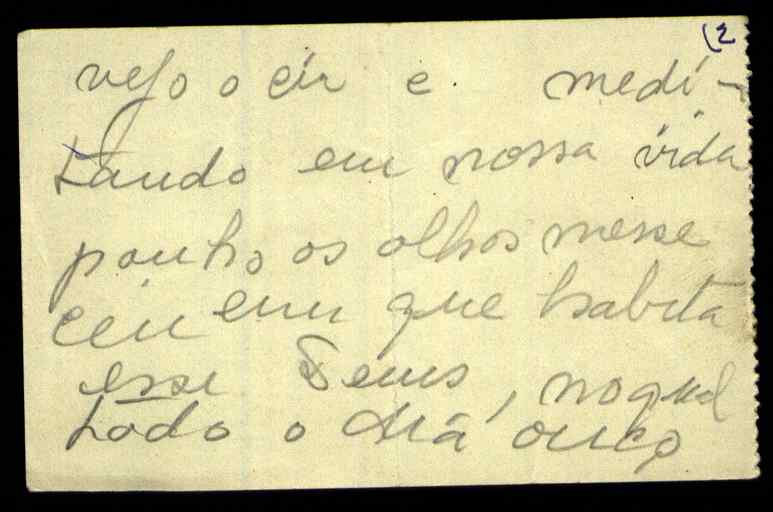 (2
vejo o céu e medi-
tando em nossa vida
ponho os olhos nesse
céu em que habita
esse Deus, no qual
todo o diá ouço